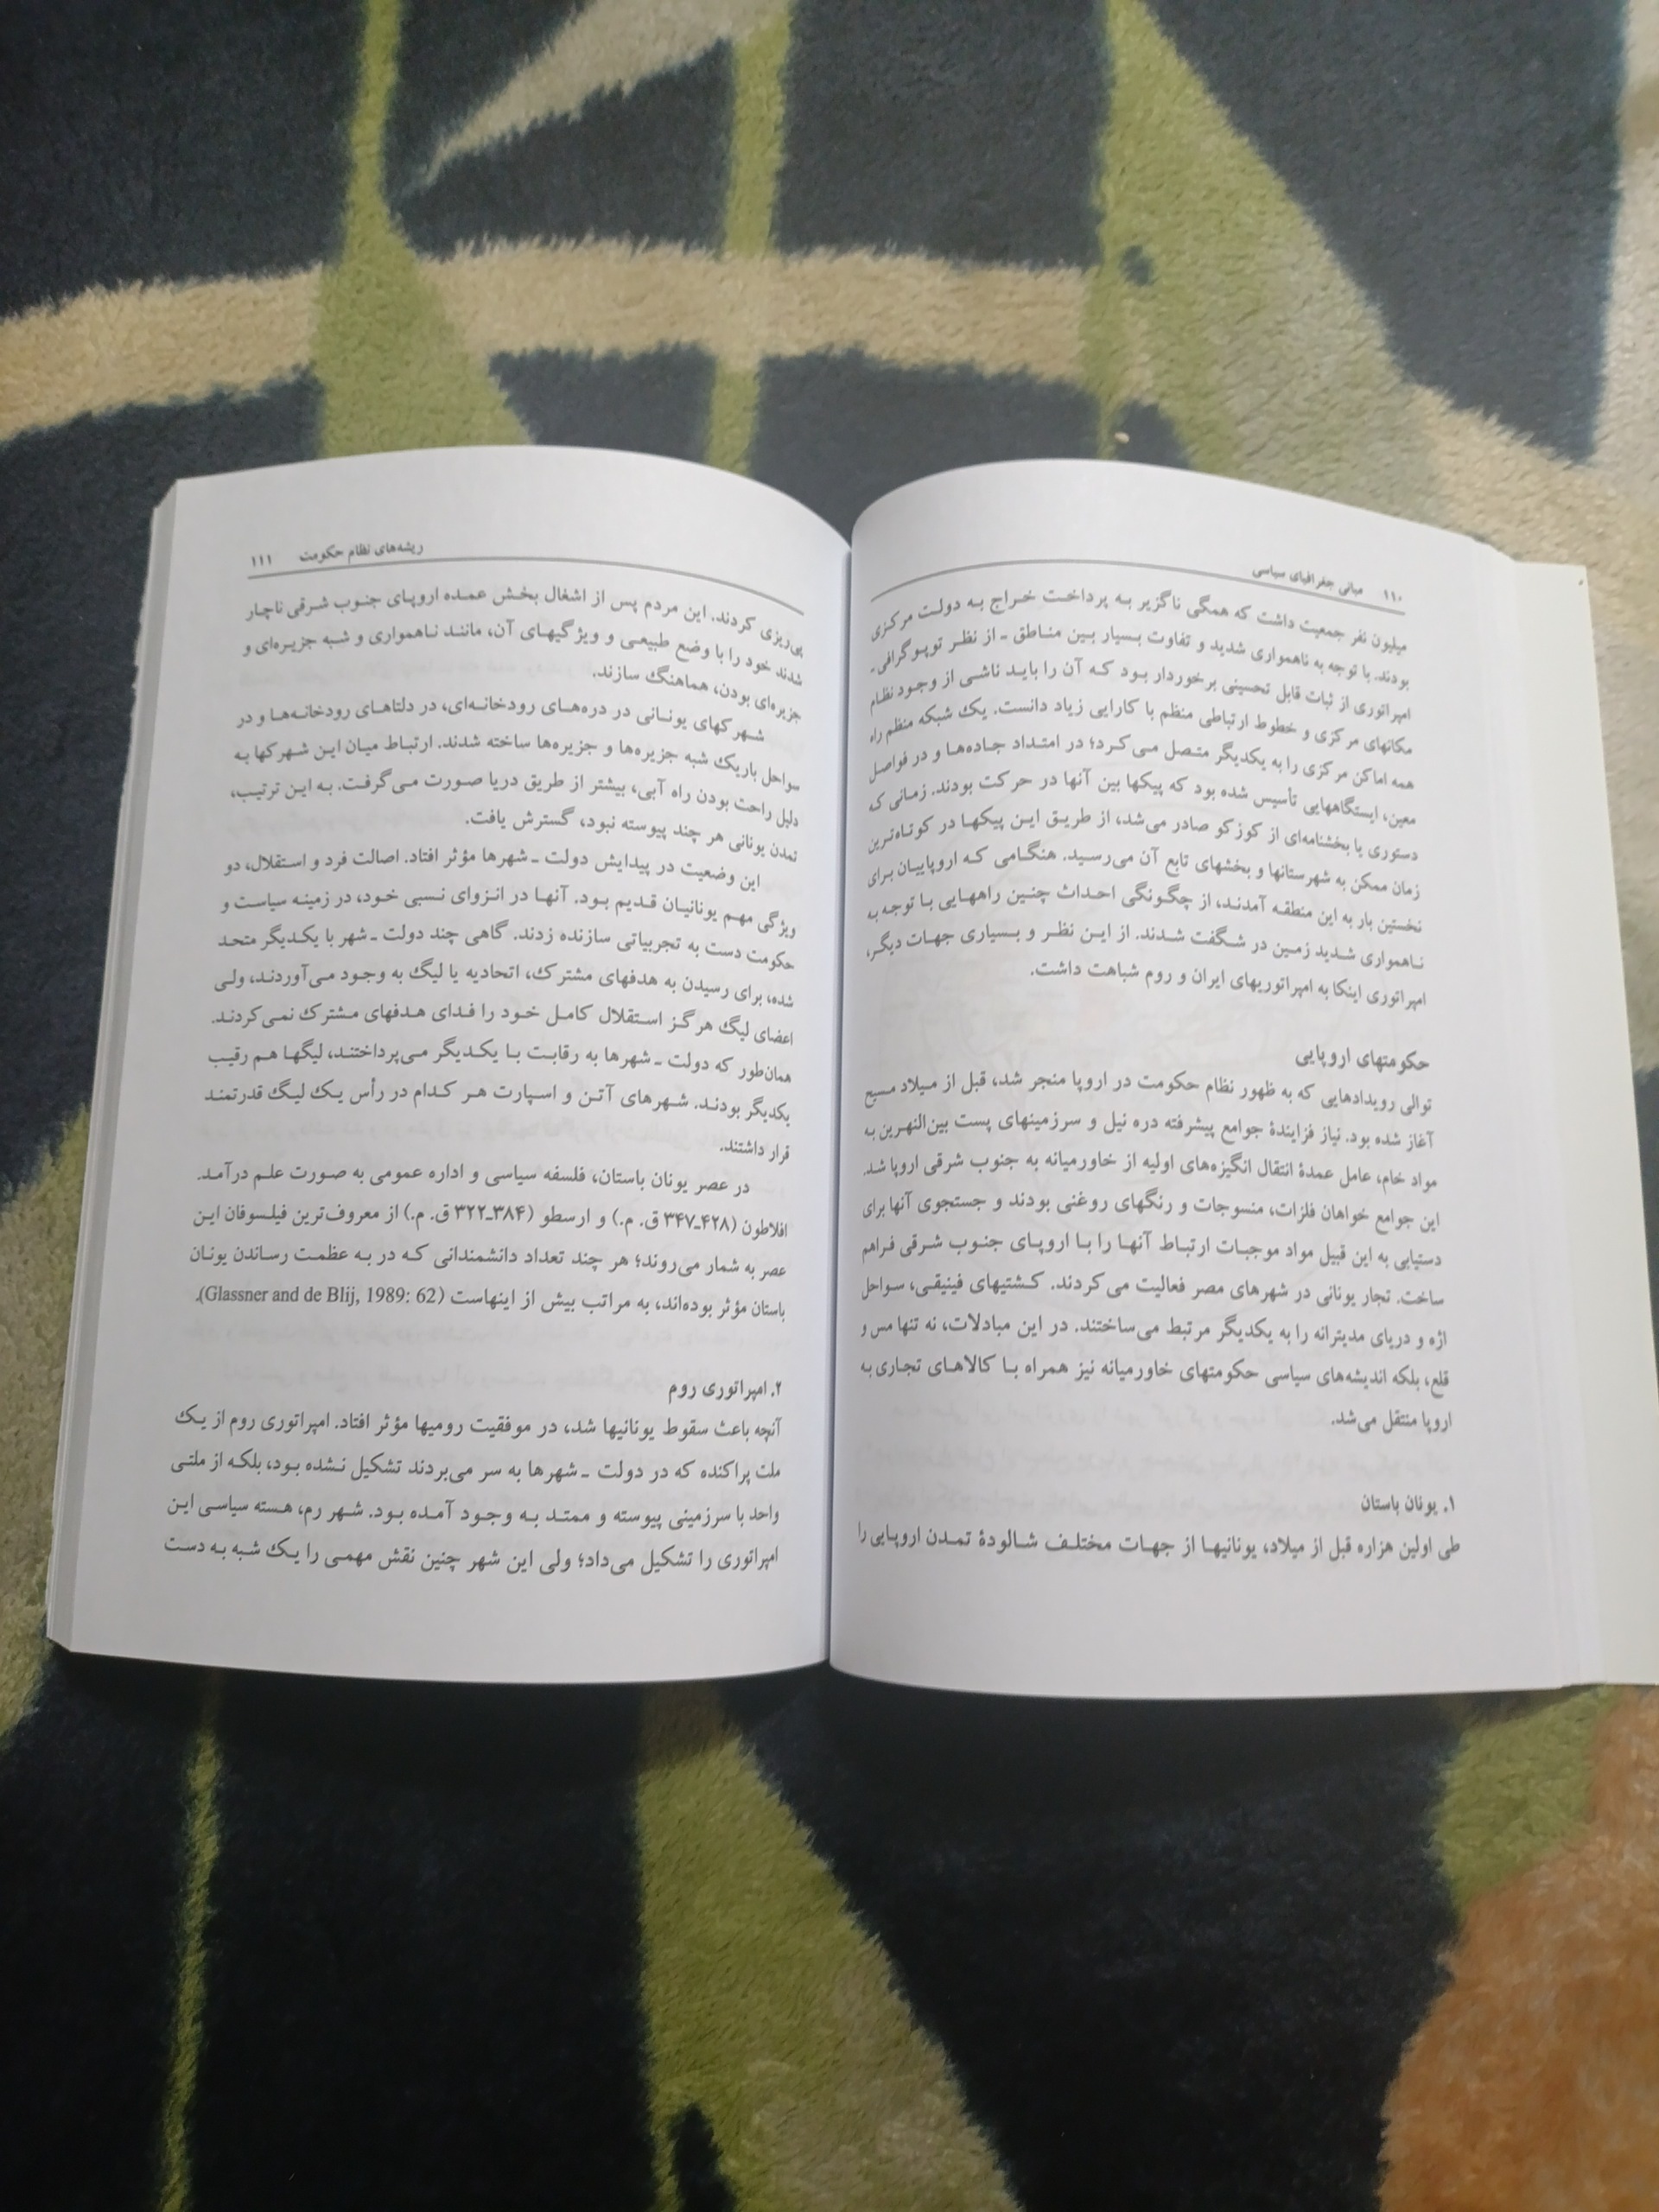 ۱۱۰ مبانی جغرافیای سیاسی
میلیون نفر جمعیت داشت که همگی ناگزیر به پرداخت خراج به دولت مرکزی
بودند. با توجه به ناهمواری شدید و تفاوت بسیار بین مناطق ـ از نظر توپوگرافی ـ
امپراتوری از ثبات قابل تحسینی برخوردار بود که آن را باید ناشی از وجود نظام
مکانهای مرکزی و خطوط ارتباطی منظم با کارایی زیاد دانست. یک شبکه منظم راه
همه اماکن مرکزی را به یکدیگر متصل می‌کرد؛ در امتداد جاده‌ها و در فواصل
معین، ایستگاههایی تأسیس شده بود که پیکها بین آنها در حرکت بودند. زمانی که
دستوری یا بخشنامه‌ای از کوزکو صادر می‌شد، از طریق این پیکها در کوتاه‌ترین
زمان ممکن به شهرستانها و بخشهای تابع آن می‌رسید. هنگامی که اروپاییان برای
نخستین بار به این منطقه آمدند، از چگونگی احداث چنین راههایی با توجه به
ناهمواری شدید زمین در شگفت شدند. از این نظر و بسیاری جهات دیگر،
امپراتوری اینکا به امپراتوریهای ایران و روم شباهت داشت.
حکومتهای اروپایی
توالی رویدادهایی که به ظهور نظام حکومت در اروپا منجر شد، قبل از میلاد مسیح
آغاز شده بود. نیاز فزایندهٔ جوامع پیشرفته دره نیل و سرزمینهای پست بین‌النهرین به
مواد خام، عامل عمدهٔ انتقال انگیزه‌های اولیه از خاورمیانه به جنوب شرقی اروپا شد.
این جوامع خواهان فلزات، منسوجات و رنگهای روغنی بودند و جستجوی آنها برای
دستیابی به این قبیل مواد موجبات ارتباط آنها را با اروپای جنوب شرقی فراهم
ساخت. تجار یونانی در شهرهای مصر فعالیت می‌کردند. کشتیهای فینیقی، سواحل
اژه و دریای مدیترانه را به یکدیگر مرتبط می‌ساختند. در این مبادلات، نه تنها مس و
قلع، بلکه اندیشه‌های سیاسی حکومتهای خاورمیانه نیز همراه با کالاهای تجاری به
اروپا منتقل می‌شد.
۱. یونان باستان
طی اولین هزاره قبل از میلاد، یونانیها از جهات مختلف شالودهٔ تمدن اروپایی را
ریشه‌های نظام حکومت ۱۱۱
پی‌ریزی کردند. این مردم پس از اشغال بخش عمده اروپای جنوب شرقی ناچار
شدند خود را با وضع طبیعی و ویژگیهای آن، مانند ناهمواری و شبه جزیره‌ای و
جزیره‌ای بودن، هماهنگ سازند.
شهرکهای یونانی در دره‌های رودخانه‌ای، در دلتاهای رودخانه‌ها و در
سواحل باریک شبه جزیره‌ها و جزیره‌ها ساخته شدند. ارتباط میان این شهرکها به
دلیل راحت بودن راه آبی، بیشتر از طریق دریا صورت می‌گرفت. به این ترتیب،
تمدن یونانی هر چند پیوسته نبود، گسترش یافت.
این وضعیت در پیدایش دولت ـ شهرها مؤثر افتاد. اصالت فرد و استقلال، دو
ویژگی مهم یونانیان قدیم بود. آنها در انزوای نسبی خود، در زمینه سیاست و
حکومت دست به تجربیاتی سازنده زدند. گاهی چند دولت ـ شهر با یکدیگر متحد
شده، برای رسیدن به هدفهای مشترک، اتحادیه یا لیگ به وجود می‌آوردند، ولی
اعضای لیگ هرگز استقلال کامل خود را فدای هدفهای مشترک نمی‌کردند.
همان‌طور که دولت ـ شهرها به رقابت با یکدیگر می‌پرداختند، لیگها هم رقیب
یکدیگر بودند. شهرهای آتن و اسپارت هر کدام در رأس یک لیگ قدرتمند
قرار داشتند.
در عصر یونان باستان، فلسفه سیاسی و اداره عمومی به صورت علم درآمد.
افلاطون (۴۲۸ـ۳۴۷ ق. م.) و ارسطو (۳۸۴ـ۳۲۲ ق. م.) از معروف‌ترین فیلسوفان این
عصر به شمار می‌روند؛ هر چند تعداد دانشمندانی که در به عظمت رساندن یونان
باستان مؤثر بوده‌اند، به مراتب بیش از اینهاست (Glassner and de Blij, 1989: 62).
۲. امپراتوری روم
آنچه باعث سقوط یونانیها شد، در موفقیت رومیها مؤثر افتاد. امپراتوری روم از یک
ملت پراکنده که در دولت ـ شهرها به سر می‌بردند تشکیل نشده بود، بلکه از ملتی
واحد با سرزمینی پیوسته و ممتد به وجود آمده بود. شهر رم، هسته سیاسی این
امپراتوری را تشکیل می‌داد؛ ولی این شهر چنین نقش مهمی را یک شبه به دست